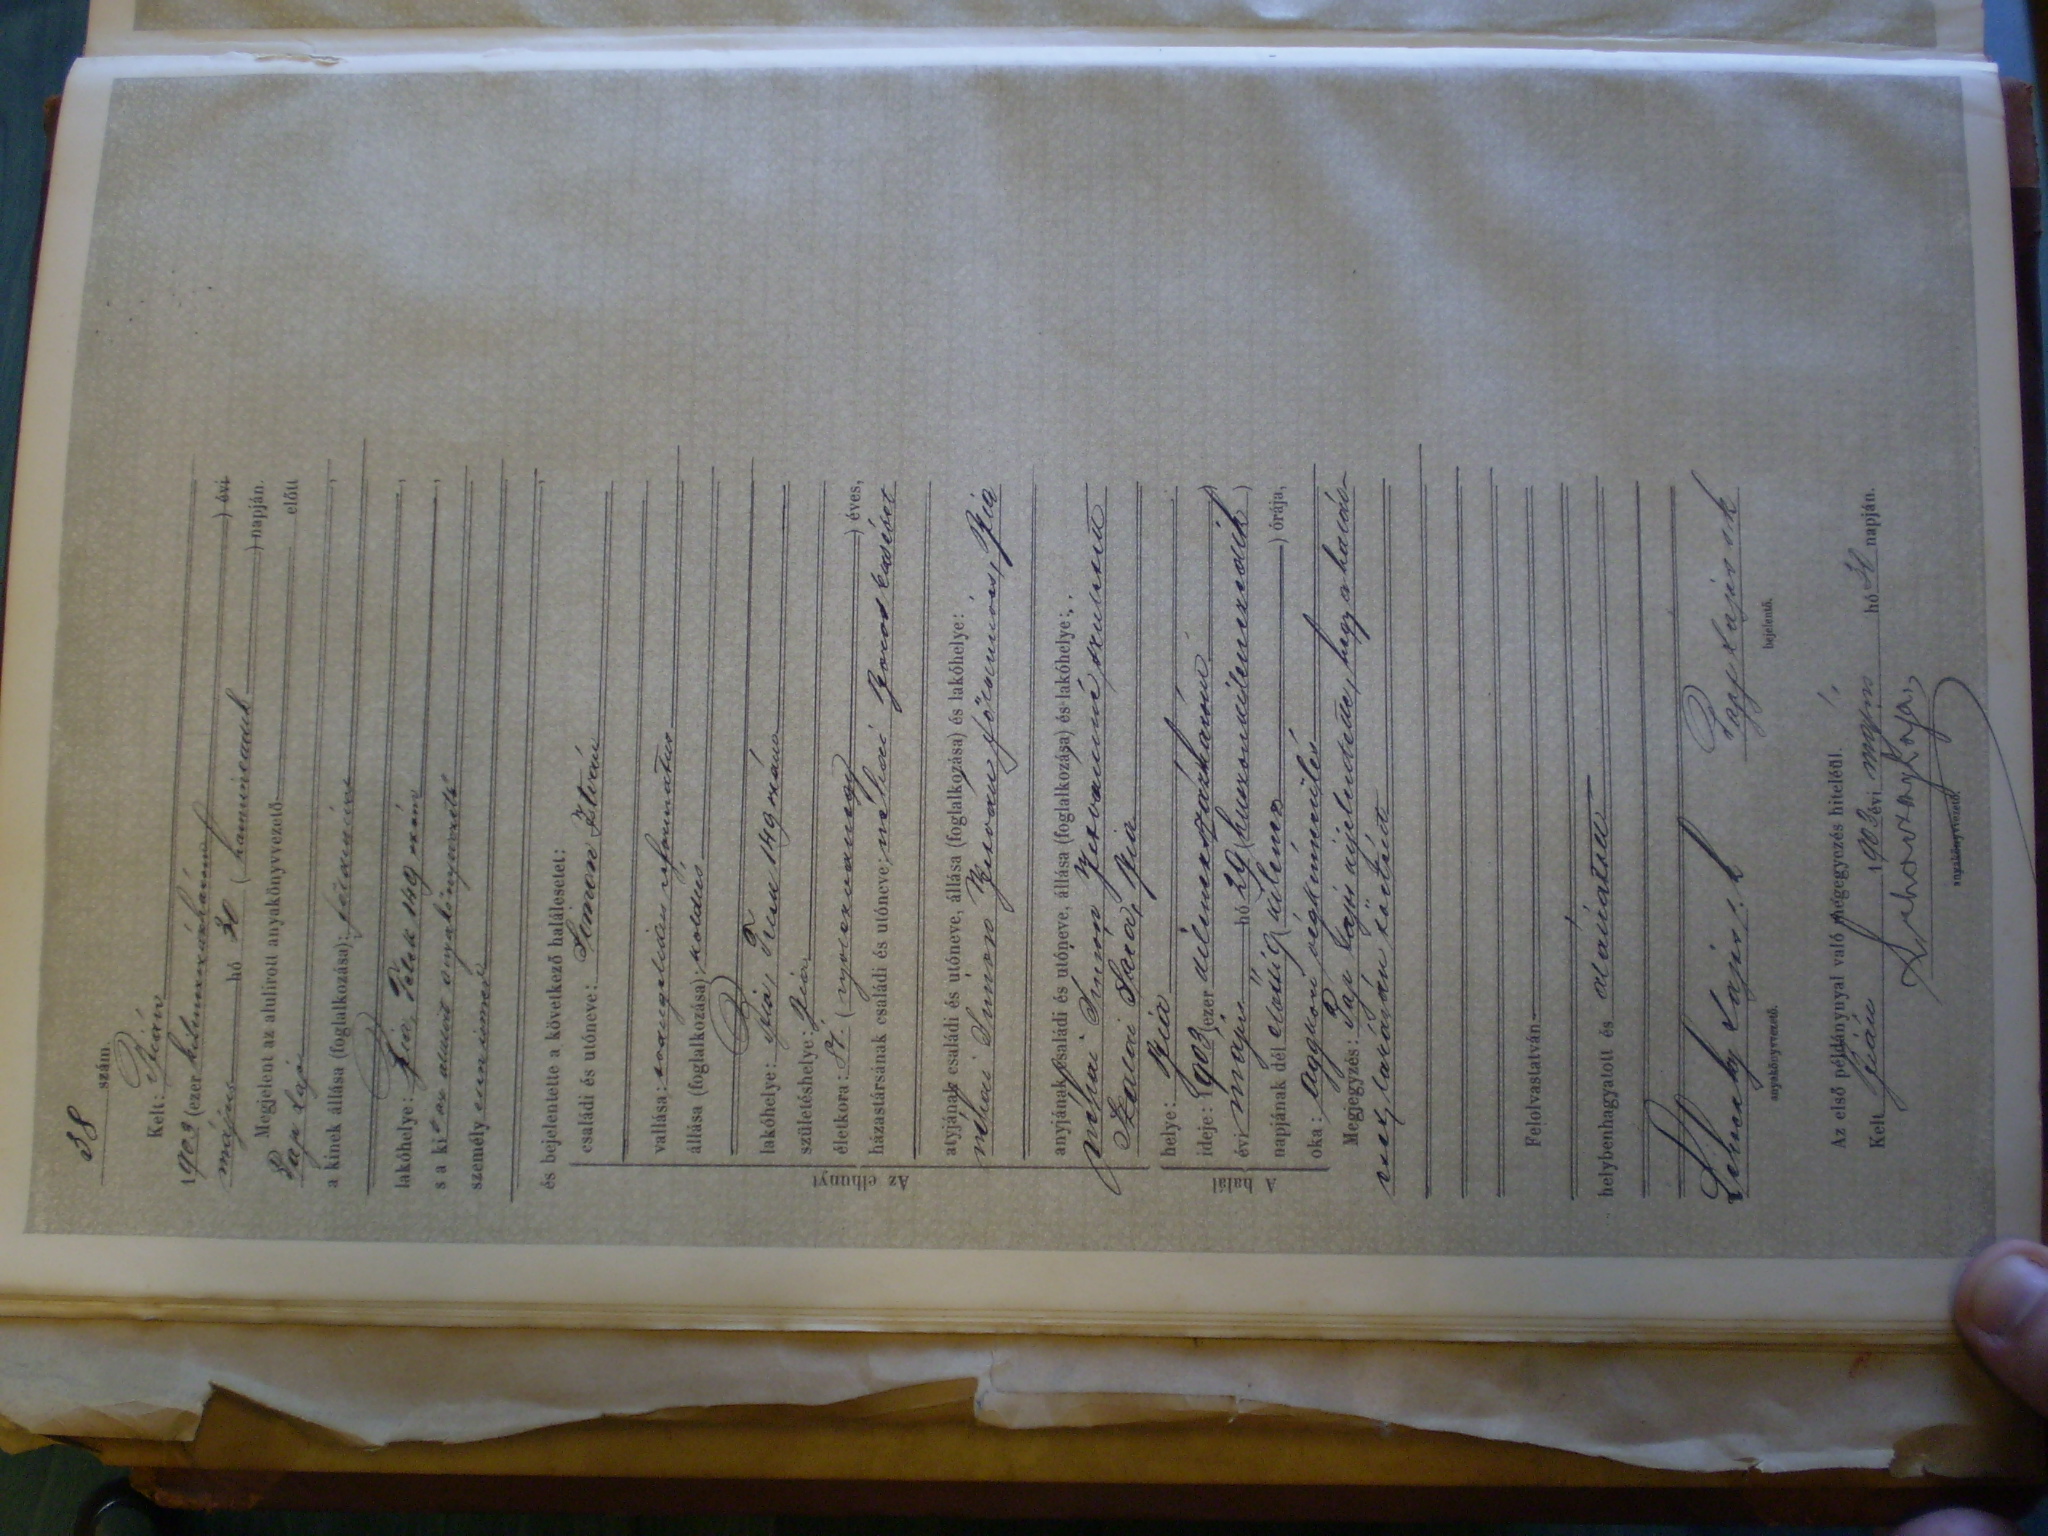 38 szám.
Kelt: Bián
1903 (ezer kilencszázhárom) évi
május hó 30 (harmincadik) napján.
Megjelent az alulirott anyakönyvvezető előtt
Pap Lajos
a kinek állása (foglalkozása):
lakóhelye: Bia, Telek 149 szám
s a kit az alulirt anyakönyvvezető
személyesen ismer
és bejelentette a következő halálesetet:
Az elhunyt
családi és utóneve: Simon István
vallása: evangelikus reformatus
állása (foglalkozása): koldus
lakóhelye: Bia, 149 szám
születéshelye: Bia
életkora: 81. (nyolcvanegy) éves,
házastársának családi és utóneve: néhai Boros Erzsébet
atyjának családi és utóneve, állása (foglalkozása) és lakóhelye:
néhai Simon István földmíves, Bia
anyjának családi és utóneve, állása (foglalkozása) és lakóhelye:
néhai Simon Istvánné született
Szalai Sára, Bia
A halál
helye: Bia
ideje: 1903 (ezer kilencszázhárom)
évi május hó 29 (huszonkilencedik)
napjának dél előtti 9 (kilenc) órája,
oka: aggkori végkimerülés
Megjegyzés: Pap Lajos kijelentette, hogy a halál
eset lakásán történt
Felolvastatván
helybenhagyatott és aláiratott
Pap Lajos sk
anyakönyvvezető. bejelentő.
Az első példánynyal való megegyezés hiteléül.
Kelt Bián 1903 évi május hó 30 napján.
anyakönyvvezető.